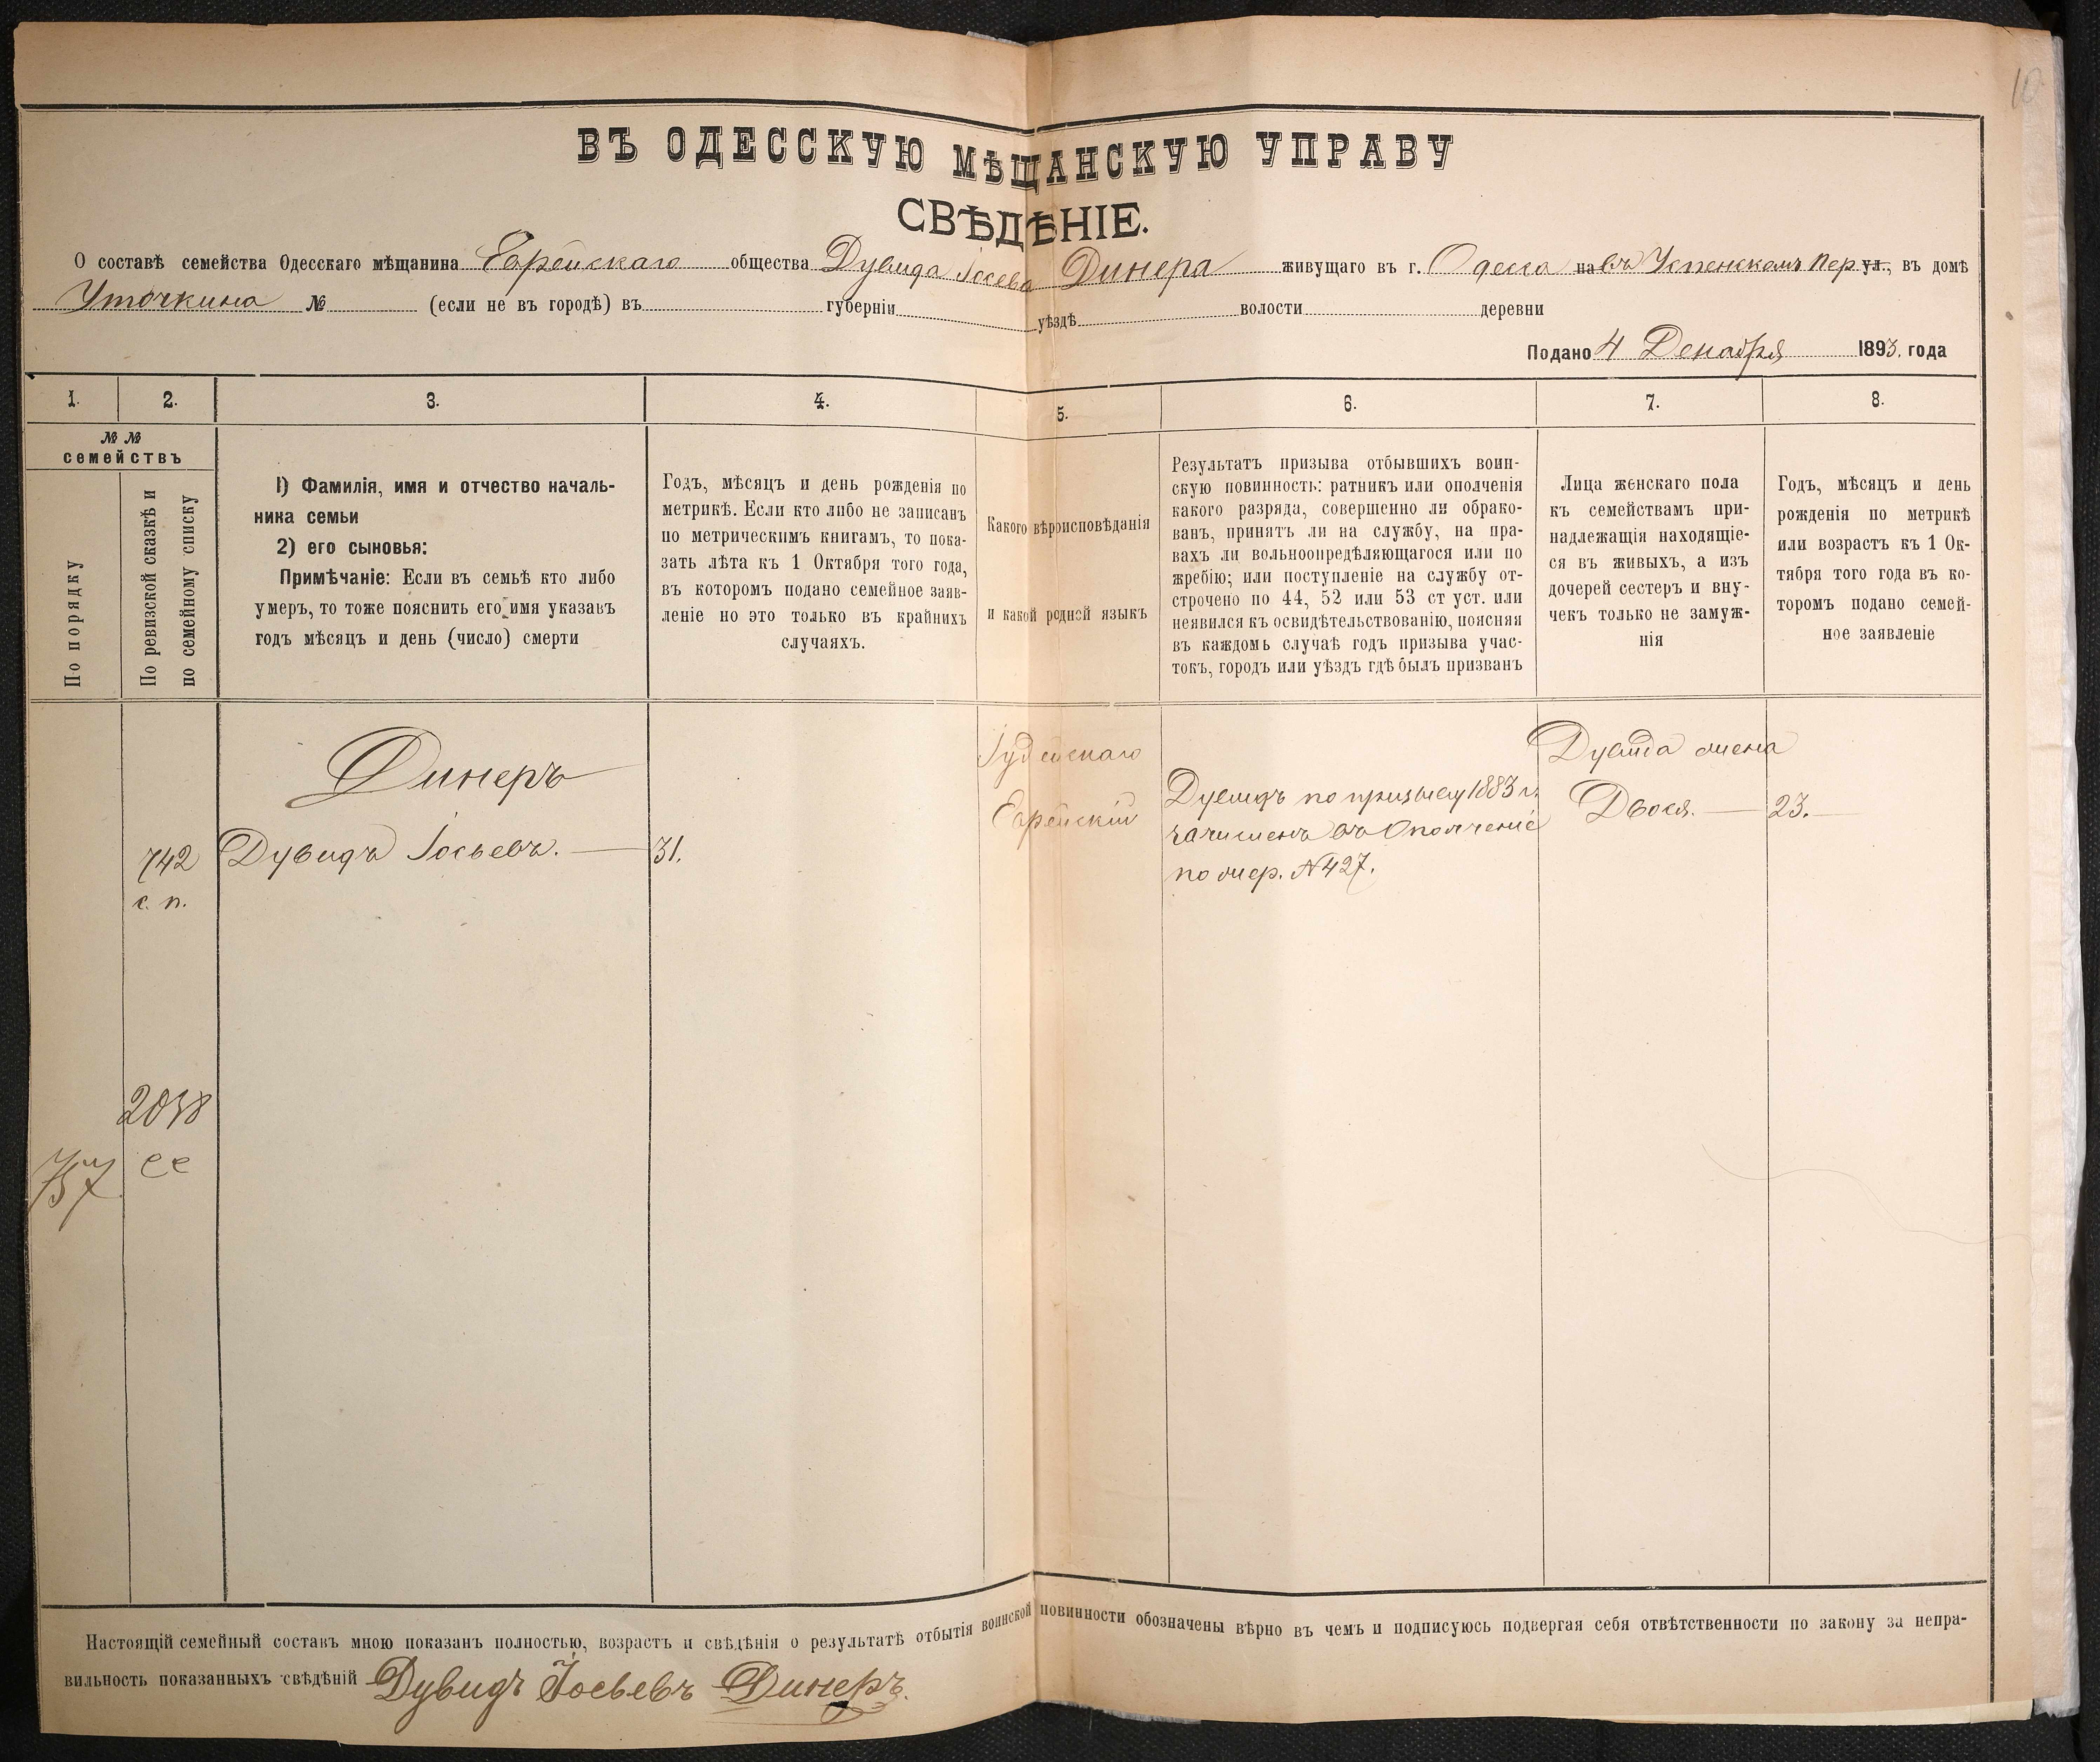 10
ВЪ ОДЕССКУЮ МѢЩАНСКУЮ УПРАВУ
СВѢДѢНІЕ.
О составѣ семейства Одесскаго мѣщанина Еврейскаго общества Дувида Іосева Динера живущаго въ г. Одесса на въ Успенскомъ пер ул., въ домѣ
Уточкина № (если не въ городѣ) въ губерніи уѣздѣ волости деревни
Подано 4 Декабря 1893. года
1. 2. 3. 4. 5. 6. 7. 8.
№ №
семействъ
По порядку
По ревизской сказкѣ и
по семейному списку
1) Фамилія, имя и отчество началь-
ника семьи
2) его сыновья:
Примѣчаніе: Если въ семьѣ кто либо
умеръ, то тоже пояснить его имя указавъ
годъ мѣсяцъ и день (число) смерти
Годъ, мѣсяцъ и день рожденія по
метрикѣ. Если кто либо не записанъ
по метрическимъ книгамъ, то пока-
зать лѣта къ 1 Октября того года,
въ которомъ подано семейное заяв-
леніе но это только въ крайнихъ
случаяхъ.
Какого вѣроисповѣданія
и какой родной языкъ
Результатъ призыва отбывшихъ воин-
скую повинность: ратникъ или ополченія
какого разряда, совершенно ли обрако-
ванъ, принятъ ли на службу, на пра-
вахъ ли вольноопредѣляющагося или по
жребію; или поступленіе на службу от-
строчено по 44, 52 или 53 ст уст. или
неявился къ освидѣтельствованію, поясняя
въ каждомъ случаѣ годъ призыва учас-
токъ, городъ или уѣздъ гдѣ былъ призванъ
Лица женскаго пола
къ семействамъ при-
надлежащія находящіе-
ся въ живыхъ, а изъ
дочерей сестеръ и вну-
чекъ только не замуж-
нія
Годъ, мѣсяцъ и день
рожденія по метрикѣ
или возрастъ къ 1 Ок-
тября того года въ ко-
торомъ подано семей-
ное заявленіе
Динеръ
742
с. п.
Дувидъ Іосьевъ. — 31.
Іудейскаго
Еврейскій
Дувидъ по призыву 1883 г.
зачисленъ въ Ополченіе
по жер. №427.
Дувида жена
Двося. — 23. —
2038
се
757
Настоящій семейный составъ мною показанъ полностью, возрастъ и свѣдѣнія о результатѣ отбытія воинской повинности обозначены вѣрно въ чемъ и подписуюсь подвергая себя отвѣтственности по закону за непра-
вильность показанныхъ свѣдѣній Дувидъ Іосьевъ Динеръ.